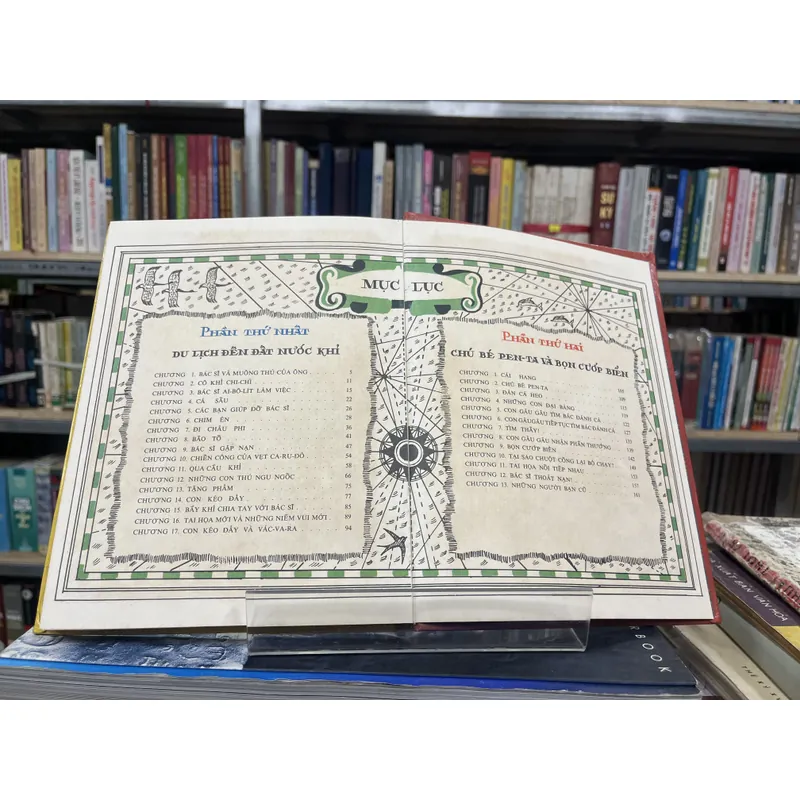 MỤC LỤC
PHẦN THỨ NHẤT
DU LỊCH ĐẾN ĐẤT NƯỚC KHỈ
CHƯƠNG 1. BÁC SĨ VÀ MUÔNG THÚ CỦA ÔNG 5
CHƯƠNG 2. CÔ KHỈ CHI-CHI 11
CHƯƠNG 3. BÁC SĨ AI-BÔ-LÍT LÀM VIỆC 15
CHƯƠNG 4. CÁ SẤU 22
CHƯƠNG 5. CÁC BẠN GIÚP ĐỠ BÁC SĨ 26
CHƯƠNG 6. CHIM ÉN 28
CHƯƠNG 7. ĐI CHÂU PHI 36
CHƯƠNG 8. BÃO TỐ 41
CHƯƠNG 9. BÁC SĨ GẶP NẠN 47
CHƯƠNG 10. CHIẾN CÔNG CỦA VẸT CA-RU-ĐÔ 54
CHƯƠNG 11. QUA CẦU KHỈ 58
CHƯƠNG 12. NHỮNG CON THÚ NGU NGỐC 66
CHƯƠNG 13. TẶNG PHẨM 75
CHƯƠNG 14. CON KÉO ĐẨY 77
CHƯƠNG 15. BẦY KHỈ CHIA TAY VỚI BÁC SĨ 85
CHƯƠNG 16. TAI HỌA MỚI VÀ NHỮNG NIỀM VUI MỚI 89
CHƯƠNG 17. CON KÉO ĐẨY VÀ VÁC-VA-RA 94
PHẦN THỨ HAI
CHÚ BÉ PEN-TA VÀ BỌN CƯỚP BIỂN
CHƯƠNG 1. CÁI HANG
CHƯƠNG 2. CHÚ BÉ PEN-TA 105
CHƯƠNG 3. ĐÀN CÁ HEO 109
CHƯƠNG 4. NHỮNG CON ĐẠI BÀNG 113
CHƯƠNG 5. CON GÂU GÂU TÌM BÁC ĐÁNH CÁ
CHƯƠNG 6. CON GÂU GÂU TIẾP TỤC TÌM BÁC ĐÁNH CÁ
CHƯƠNG 7. TÌM THẤY! 127
CHƯƠNG 8. CON GÂU GÂU NHẬN PHẦN THƯỞNG
CHƯƠNG 9. BỌN CƯỚP BIỂN
CHƯƠNG 10. TẠI SAO CHUỘT CỐNG LẠI BỎ CHẠY?
CHƯƠNG 11. TAI HỌA NỐI TIẾP NHAU
CHƯƠNG 12. BÁC SĨ THOÁT NẠN!
CHƯƠNG 13. NHỮNG NGƯỜI BẠN CŨ 161
SỬ KÝ
XUẤT BẢN VĂN HÓA
BOOK